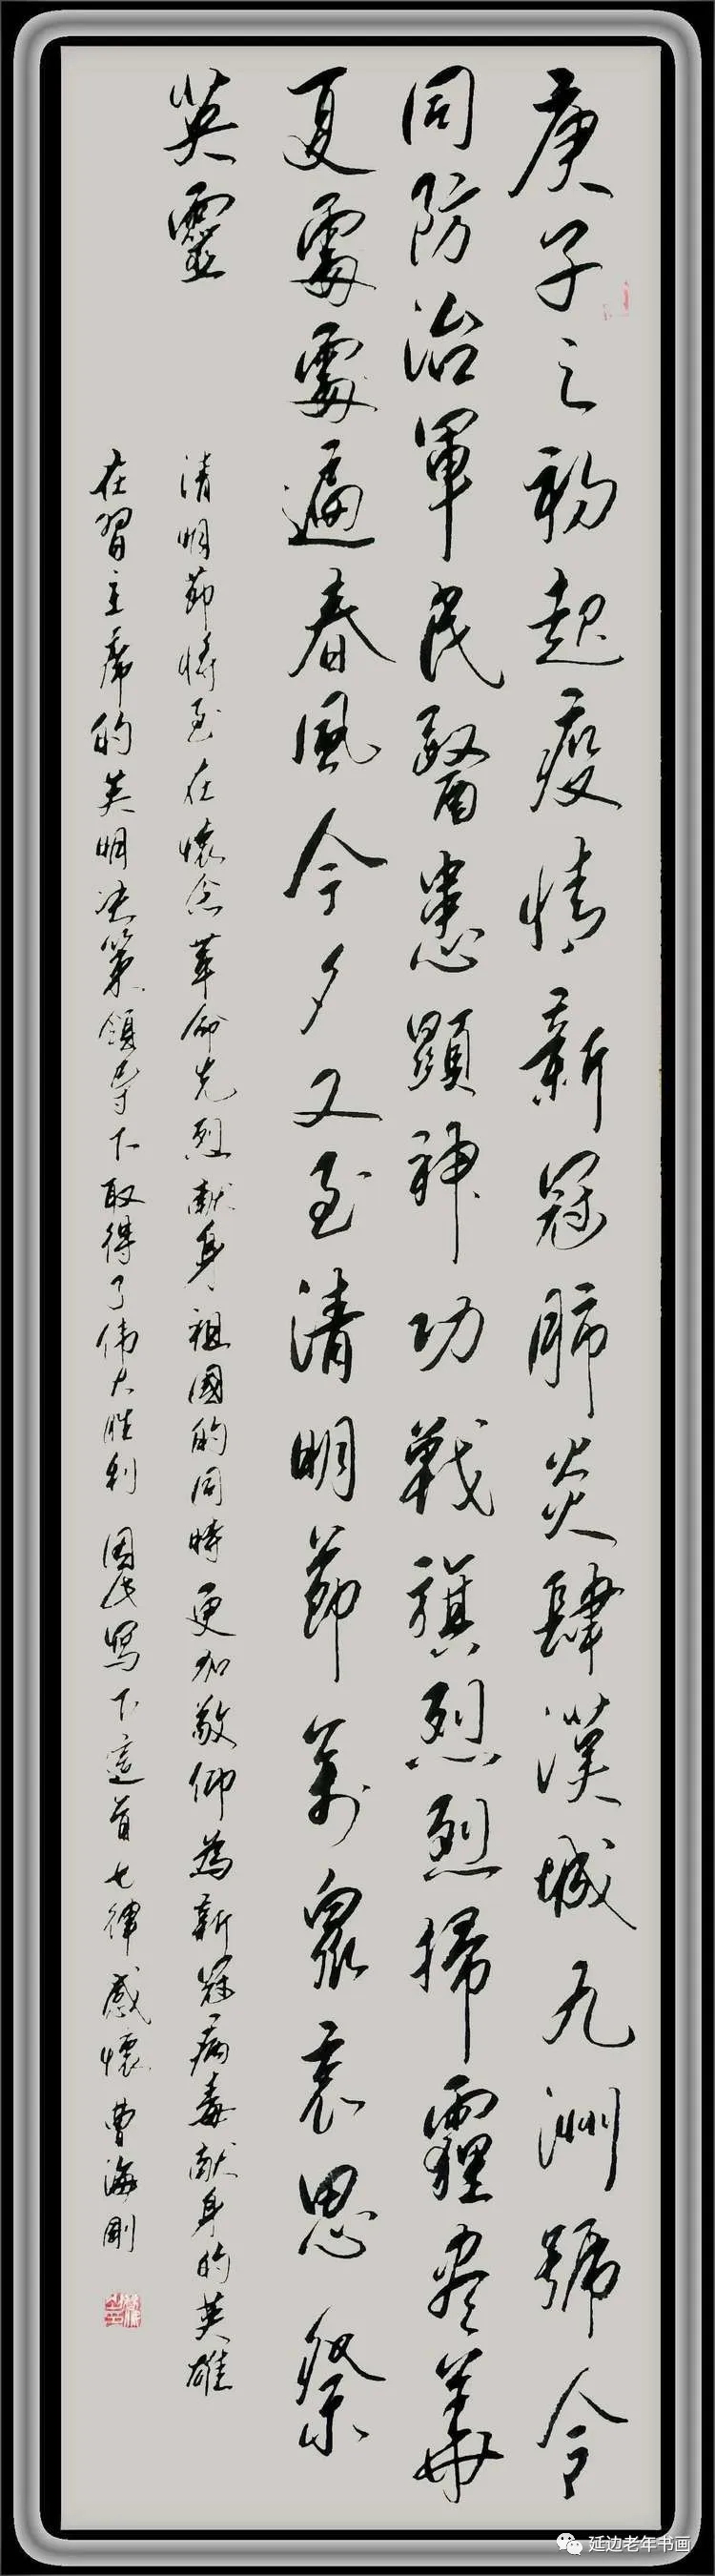 庚子之初起疫情新冠肺炎肆漢城九洲號令
同防治軍民醫患顯神功戰旗烈烈掃霾盡華
夏處處遍春風今夕又至清明節萬眾哀思祭
英靈
清明節將至在懷念革命先烈献身祖國的同時更加敬仰為新冠病毒献身的英雄
在習主席的英明决策領导下取得了伟大胜利因此写下這首七律感懷曹海剛
延边老年书画